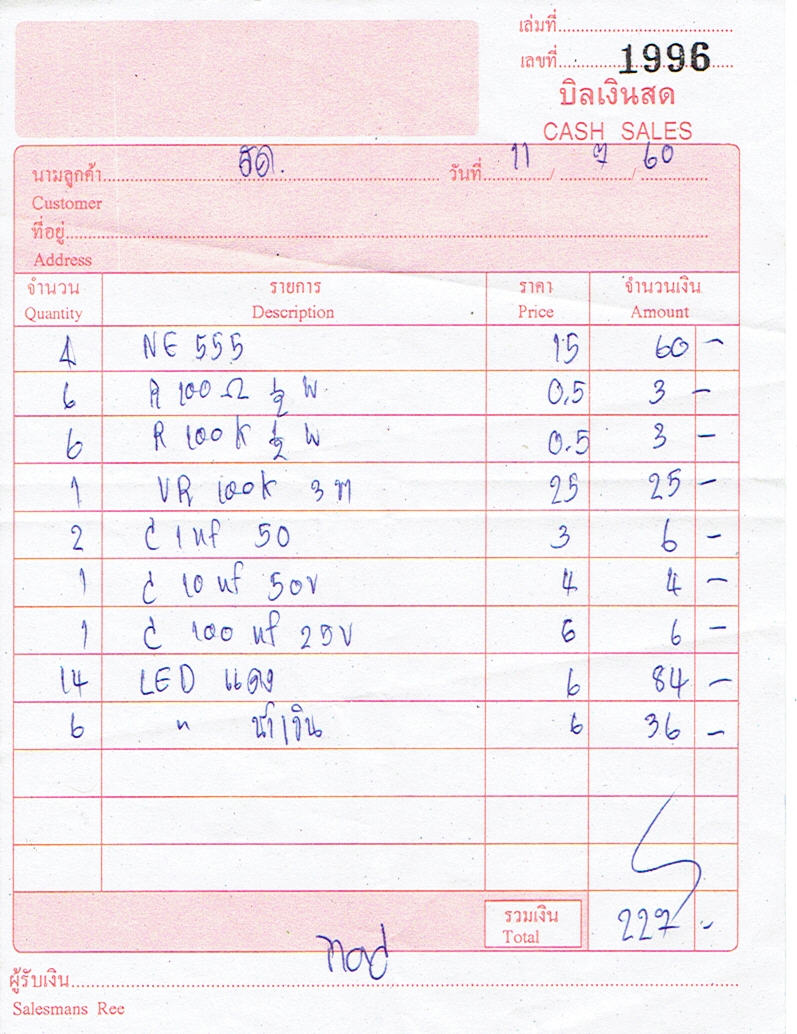 เล่มที่
เลขที่ 1996
บิลเงินสด
CASH SALES
นามลูกค้า สด. วันที่ 11 / 7 / 60
Customer
ที่อยู่
Address
จำนวน รายการ ราคา จำนวนเงิน
Quantity Description Price Amount
4 NE 555 15 60 -
6 R 100 Ω ½ W 0.5 3 -
6 R 100 K ½ W 0.5 3 -
1 VR 100K 3 ท 25 25 -
2 C 1 uf 50 3 6 -
1 C 10 uf 50V 4 4 -
1 C 100 uf 25V 6 6 -
14 LED แดง 6 84 -
6 " น้ำเงิน 6 36 -
รวมเงิน 227 .-
Total
ผู้รับเงิน
Salesmans Ree